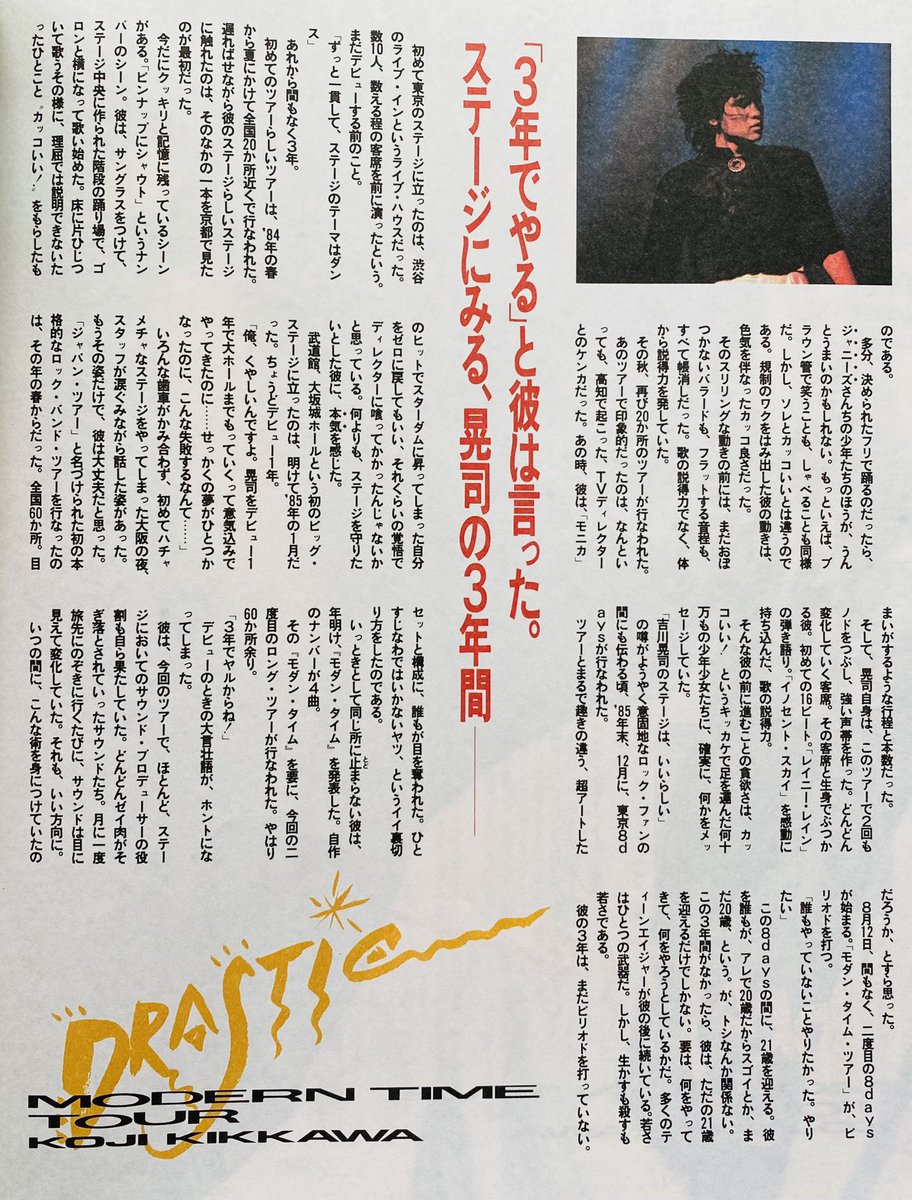 「3年でやる」と彼は言った。
ステージにみる、晃司の3年間――
初めて東京のステージに立ったのは、渋谷
のライブ・インというライブ・ハウスだった。
数10人、数える程の客席を前に演ったという。
まだデビューする前のこと。
「ずっと一貫して、ステージのテーマはダン
ス」
あれから間もなく3年。
初めてのツアーらしいツアーは、'84年の春
から夏にかけて全国20か所近くで行なわれた。
遅ればせながら彼のステージらしいステージ
に触れたのは、そのなかの一本を京都で見た
のが最初だった。
今だにクッキリと記憶に残っているシーン
がある。「ピンナップにシャウト」というナン
バーのシーン。彼は、サングラスをつけて、
ステージ中央に作られた階段の踊り場で、ゴ
ロンと横になって歌い始めた。床に片ひじつ
いて歌うその様に、理屈では説明できないた
ったひとこと〝カッコいい!〟をもらしたも
のである。
多分、決められたフリで踊るのだったら、
ジャニーズさんちの少年たちのほうが、うん
とうまいのかもしれない。もっといえば、ブ
ラウン管で笑うことも、しゃべることも同様
だ。しかし、ソレとカッコいいとは違うので
ある。規制のワクをはみ出した彼の動きは、
色気を伴なったカッコ良さだった。
そのスリリングな動きの前には、まだおぼ
つかないバラードも、フラットする音程も、
すべて帳消しだった。歌の説得力でなく、体
から説得力を発していた。
その秋、再び20か所のツアーが行なわれた。
あのツアーで印象的だったのは、なんとい
っても、高知で起こった、TVディレクター
とのケンカだった。あの時、彼は、「モニカ
のヒットでスターダムに昇ってしまった自分
をゼロに戻してもいい、それくらいの覚悟で
ディレクターに喰ってかかったんじゃないか
と思っている。何よりも、ステージを守りた
いとした彼に、本気を感じた。
武道館、大坂城ホールという初のビッグ・
ステージに立ったのは、明けて'85年の1月だ
った。ちょうどデビュー1年。
「俺、くやしいんですよ。晃司をデビュー1
年で大ホールまでもっていくって意気込みで
やってきたのに……せっかくの夢がひとつか
なったのに、こんな失敗するなんて……」
いろんな歯車がかみ合わず、初めてハチャ
メチャなステージをやってしまった大阪の夜、
スタッフが涙ぐみながら話した姿があった。
もうその姿だけで、彼は大丈夫だと思った。
「ジャパン・ツアー」と名づけられた初の本
格的なロック・バンド・ツアーを行なったの
は、その年の春からだった。全国60か所。目
まいがするような行程と本数だった。
そして、晃司自身は、このツアーで2回も
ノドをつぶし、強い声帯を作った。どんどん
変化していく客席。その客席と生身でぶつか
る彼。初めての16ビート。「レイニー・レイン」
の弾き語り。「イノセント・スカイ」を感動に
持ち込んだ、歌の説得力。
そんな彼の前に進むことの貪欲さは、カッ
コいい!というキッカケで足を運んだ何十
万もの少年少女たちに、確実に、何かをメッ
セージしていた。
「吉川晃司のステージは、いいらしい」
の噂がようやく意固地なロック・ファンの
間にも伝わる頃、'85年末、12月に、東京8d
aysが行なわれた。
ツアーとまるで趣きの違う、超アートした
セットと構成に、誰もが目を奪われた。ひと
すじなわではいかないヤツ、というイイ裏切
り方をしたのである。
いっときとして同じ所に止まらない彼は、
年明け、『モダン・タイム』を発表した。自作
のナンバーが4曲。
その『モダン・タイム』を要に、今回の二
度目のロング・ツアーが行なわれた。やはり
60か所余り。
「3年でヤルからね!」
デビューのときの大言壮語が、ホントにな
ってしまった。
彼は、今回のツアーで、ほとんど、ステー
ジにおいてのサウンド・プロデューサーの役
割も自ら果たしていた。どんどんゼイ肉がそ
ぎ落とされていったサウンドたち。月に一度
旅先にのぞきに行くたびに、サウンドは目に
見えて変化していた。それも、いい方向に。
いつの間に、こんな術を身につけていたの
だろうか、とすら思った。
8月12日、間もなく、二度目の8days
が始まる。「モダン・タイム・ツアー」が、ピ
リオドを打つ。
「誰もやっていないことやりたかった。やり
たい」
この8daysの間に、21歳を迎える。彼
を誰もが、アレで20歳だからスゴイとか、ま
だ20歳、という。が、トシなんか関係ない。
この3年間がなかったら、彼は、ただの21歳
を迎えるだけでしかない。要は、何をやって
きて、何をやろうとしているかだ。多くのテ
ィーンエイジャーが彼の後に続いている。若さ
はひとつの武器だ。しかし、生かすも殺すも
若さである。
彼の3年は、まだピリオドを打っていない。
DRASTIC
MODERN TIME
TOUR
KOJI KIKKAWA